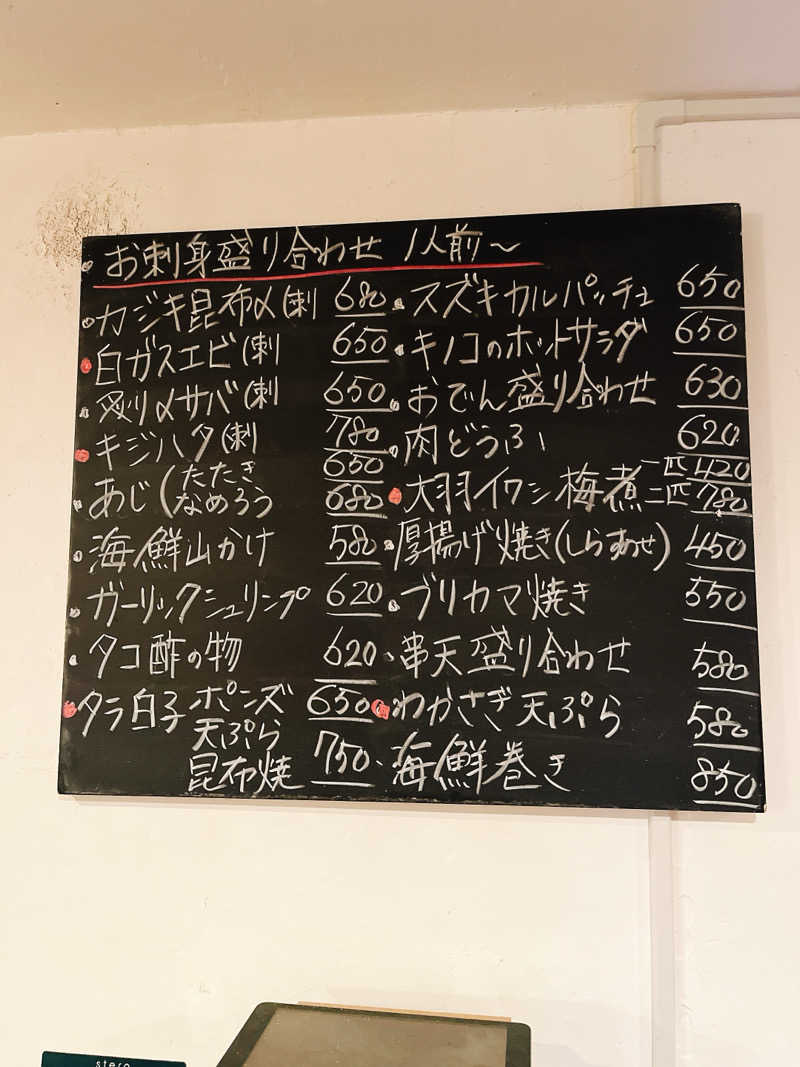 お刺身盛り合わせ 1人前～
カジキ昆布〆(刺 680
白ガスエビ(刺 650
炙り〆サバ(刺 650
キジハタ(刺 780
あじ(たたき 650
なめろう 680
海鮮山かけ 580
ガーリックシュリンプ 620
タコ酢の物 620
タラ白子 ポンズ 650
天ぷら
昆布焼 750
スズキカルパッチョ 650
キノコのホットサラダ 650
おでん盛り合わせ 630
肉どうふ 620
大羽イワシ梅煮 一匹 420
二匹 780
厚揚げ焼き(しらあせ) 450
ブリカマ焼き 550
串天盛り合わせ 580
わかさぎ天ぷら 580
海鮮巻き 850
stera